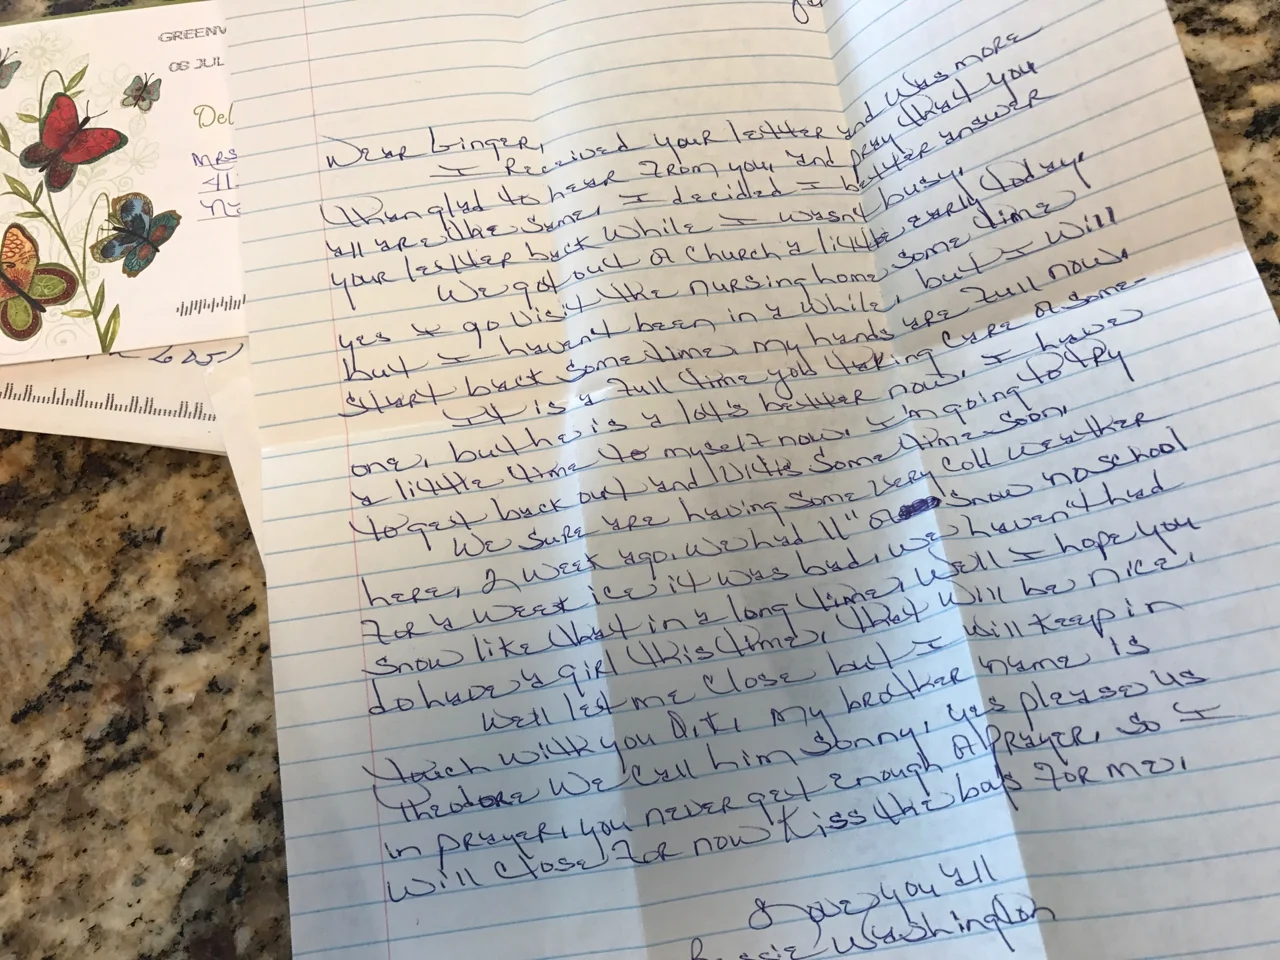 GREENV
06 JUL
Del
MRS
Dear Ginger,
I Received your letter and was more
than glad to hear from you, and pray that you
all are the same, I decided I better answer
your letter back while I wasn't busy.
We got out of Church a little early today.
yes I go visit the nursing home some time
but I haven't been in a while, but I will
start back sometime. my hands are full now.
It is a full time you taking care of some-
one, but he is a lot's better now. I have
a little time to myself now. I'm going to try
to get back out and visit some time soon.
We sure are having some very cold weather
here, 2 week ago. we had 11" of snow no school
for a week ice it was bad, we haven't had
snow like that in a long time, Well I hope you
do have a girl this time, that will be nice.
Well let me close but I will keep in
touch with you O.K. my brother name is
Theodore we call him Sonny, yes please us
in prayer, you never get enough of prayer, so I
will close for now Kiss the boys for me.
Love you all
Washington